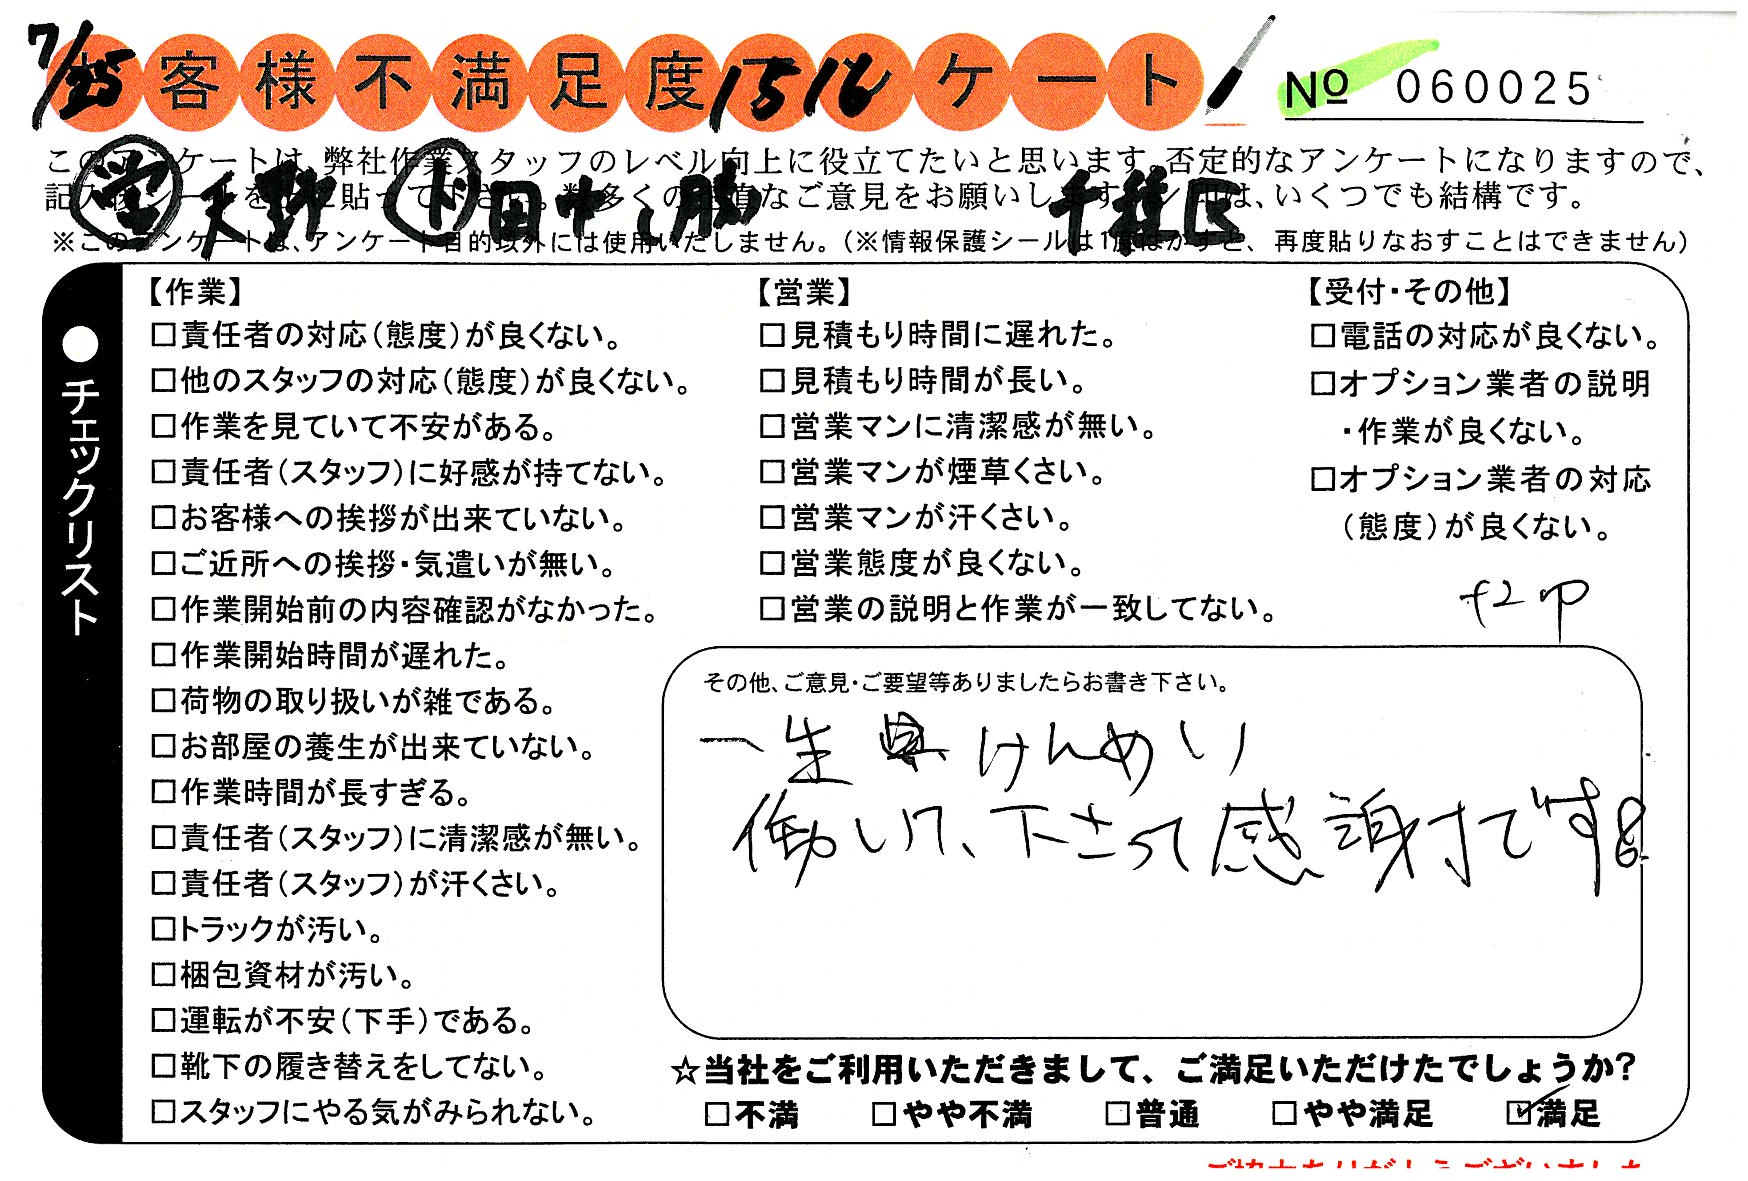 7/25 お客様不満足度アンケート 1516 No 060025
このアンケートは、弊社作業スタッフのレベル向上に役立てたいと思います。否定的なアンケートになりますので、
記入後シールを上に貼って下さい。数多くの正直なご意見をお願いします。
は、いくつでも結構です。
営 天野 ド 田中 勝 千種区
※このアンケートは、アンケート目的以外には使用いたしません。(※情報保護シールは1度はがすと、再度貼りなおすことはできません)
●チェックリスト
【作業】
□責任者の対応(態度)が良くない。
□他のスタッフの対応(態度)が良くない。
□作業を見ていて不安がある。
□責任者(スタッフ)に好感が持てない。
□お客様への挨拶が出来ていない。
□ご近所への挨拶・気遣いが無い。
□作業開始前の内容確認がなかった。
□作業開始時間が遅れた。
□荷物の取り扱いが雑である。
□お部屋の養生が出来ていない。
□作業時間が長すぎる。
□責任者(スタッフ)に清潔感が無い。
□責任者(スタッフ)が汗くさい。
□トラックが汚い。
□梱包資材が汚い。
□運転が不安(下手)である。
□靴下の履き替えをしてない。
□スタッフにやる気がみられない。
【営業】
□見積もり時間に遅れた。
□見積もり時間が長い。
□営業マンに清潔感が無い。
□営業マンが煙草くさい。
□営業マンが汗くさい。
□営業態度が良くない。
□営業の説明と作業が一致してない。
【受付・その他】
□電話の対応が良くない。
□オプション業者の説明
・作業が良くない。
□オプション業者の対応
(態度)が良くない。
その他、ご意見・ご要望等ありましたらお書き下さい。
一生けんめい
働いて、下さって感謝です
☆当社をご利用いただきまして、ご満足いただけたでしょうか?
□不満 □やや不満 □普通 □やや満足 ☑満足
ご協力ありがとうございました